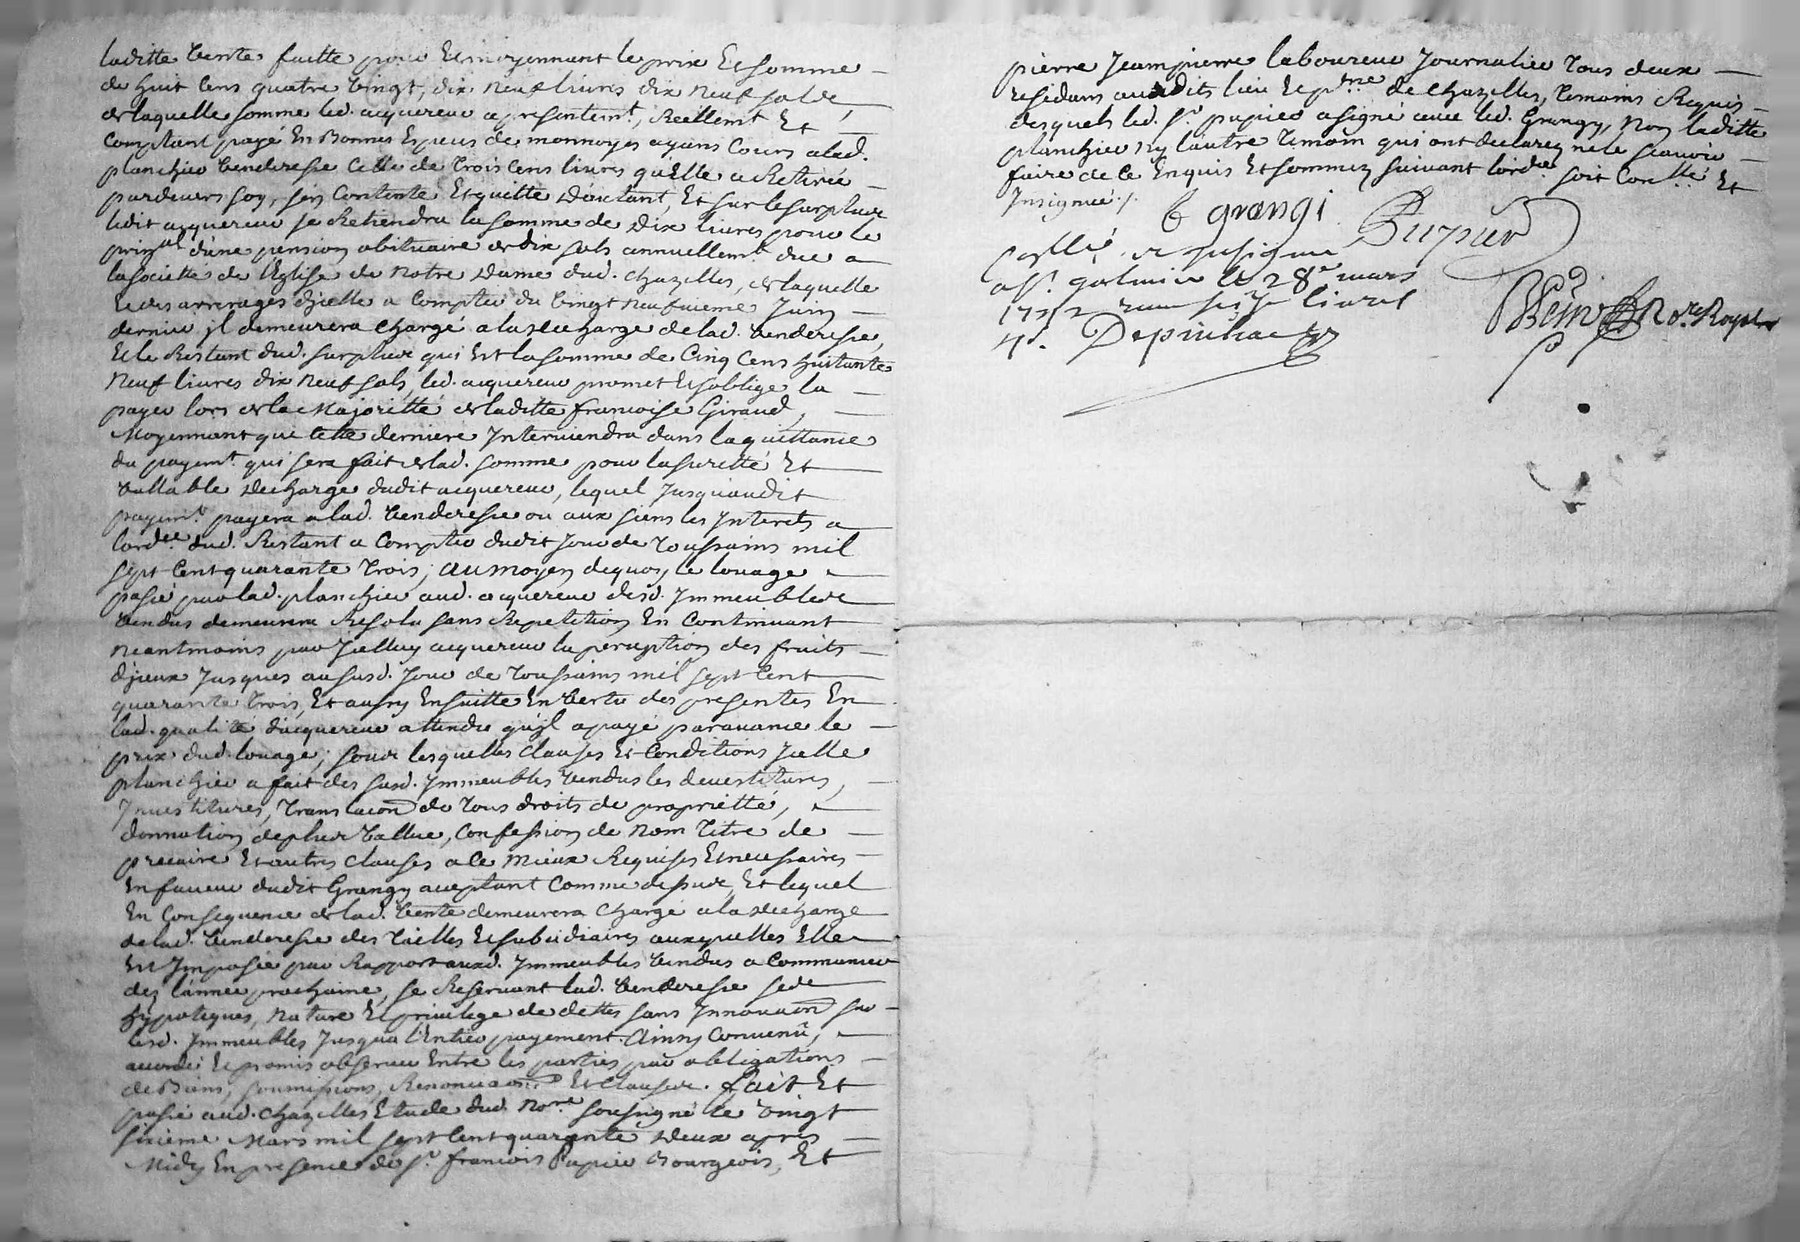 laditte vente faitte pour Et moyennant le prix Et somme
de huit Cens quatre vingt, dix neuf livres dix neuf sols,
de laquelle somme led. acquereur a presentemt, Réellemt Et
Comptant payé En Bonnes Especes de monnoyes ayans Cours a lad.
planchier venderesse Celle de Trois Cens livres qu'Elle a Retirée
pardevers soy, s'en Contente Et quitte d'autant, Et sur le surplus
ledit acquereur se Retiendra la somme de Dix livres pour le
prinal d'une pension obituaire de dix sols annuellemt due a
la societté de l'Eglise de Notre Dame dud. Chazelles, de laquelle
Et des arrerages d'jcelle a Compter du vingt neufvieme Juin
dernier jl demeurera Chargé a la decharge de lad. venderesse,
Et le Restant dud. surplus qui Est la somme de Cinq Cens huitante
neuf livres dix neuf sols, led. acquereur promet Et s'oblige la
payer lors de la Majoritté de laditte francoise Giraud,
Moyennant que cette derniere Interviendra dans la quittance
du payemt qui sera fait de lad. somme pour la suretté Et
vallable decharge dudit acquereur, lequel Jusqu'audit
payemt payera a lad. venderesse ou aux siens les Interets a
l'ordre dud. Restant a Compter dudit Jour de Toussains mil
sept Cent quarante Trois; au moyen de quoy le louage
passé par lad. planchier aud. acquereur desd. Immeubles
vendus demeurera Resolu sans Repetition En Continuant
neantmoins par Jcelluy acquereur la perception des fruits
d'jceux Jusques au susd. Jour de Toussains mil sept Cent
quarante Trois, Et aussy Ensuitte En vertu des presentes En
lad. qualité d'acquereur attendu qu'jl a payé par avance le
prix dud. louage; sous lesquelles Clauses Et Conditions Jcelle
planchier a fait des susd. Immeubles vendus les devestitures,
Investitures, Translaon de Tous droits de propriétté,
donnation de plus vallue, Confession de nom Titre de
precaire Et autres Clauses a Ce mieux Requises Et necessaires
En faveur dudit Grangy aceptant Comme dessus, Et lequel
En Consequence de lad. vente demeurera Chargé a la decharge
de lad. venderesse des Tailles Et subsidiaires auxquelles Elle
Est Imposée par Rapport auxd. Immeubles vendus a Commencer
dez l'année prochaine, se Reservant lad. venderesse ses
hypoteques, nature Et privilege de dettes sans Innovaon sur
lesd. Immeubles Jusqu'a l'Entier payement. Ainsy Convenû,
accordé Et promis observer Entre les parties par obligations
de Biens, soumissions, Renonciaons Et Clauses. fait Et
passé aud. Chazelles Etude dud. Nore soussigné le vingt
sixieme Mars mil sept Cent quarante Deux apres
Midy En presence de sr francois Pupier Bourgeois, Et
pierre Jeanpierre laboureur Journalier Tous deux
residans audits lieu Et psse de Chazelles, Temoins Requis
desquels led. sr pupier a signé avec led. Grangy, non laditte
planchier ny l'autre Temoin qui ont declarez ne le scavoir
faire de Ce Enquis Et sommez suivant l'ordce soit Conllé Et
Insignué ./.
grangi Pupier
Conllé et insigné
a St galmier le 28e mars
1742 livres
4s. Depinhac
Nore Royal